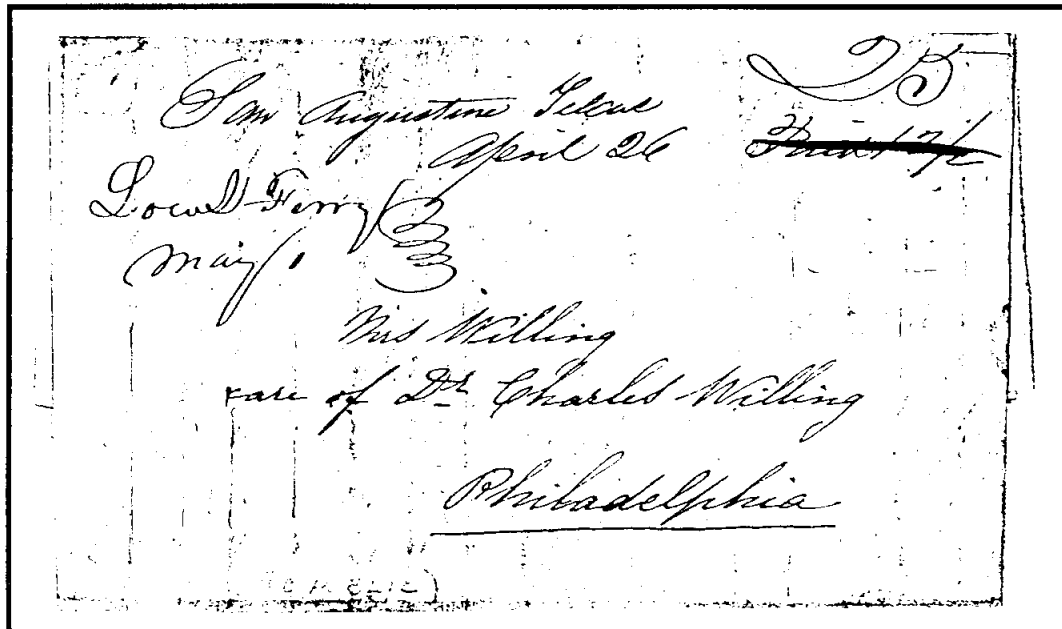 25
San Augustine Texas
April 26 Paid
Ferry
May 1
Mrs Willing
care of Dr Charles Willing
Philadelphia